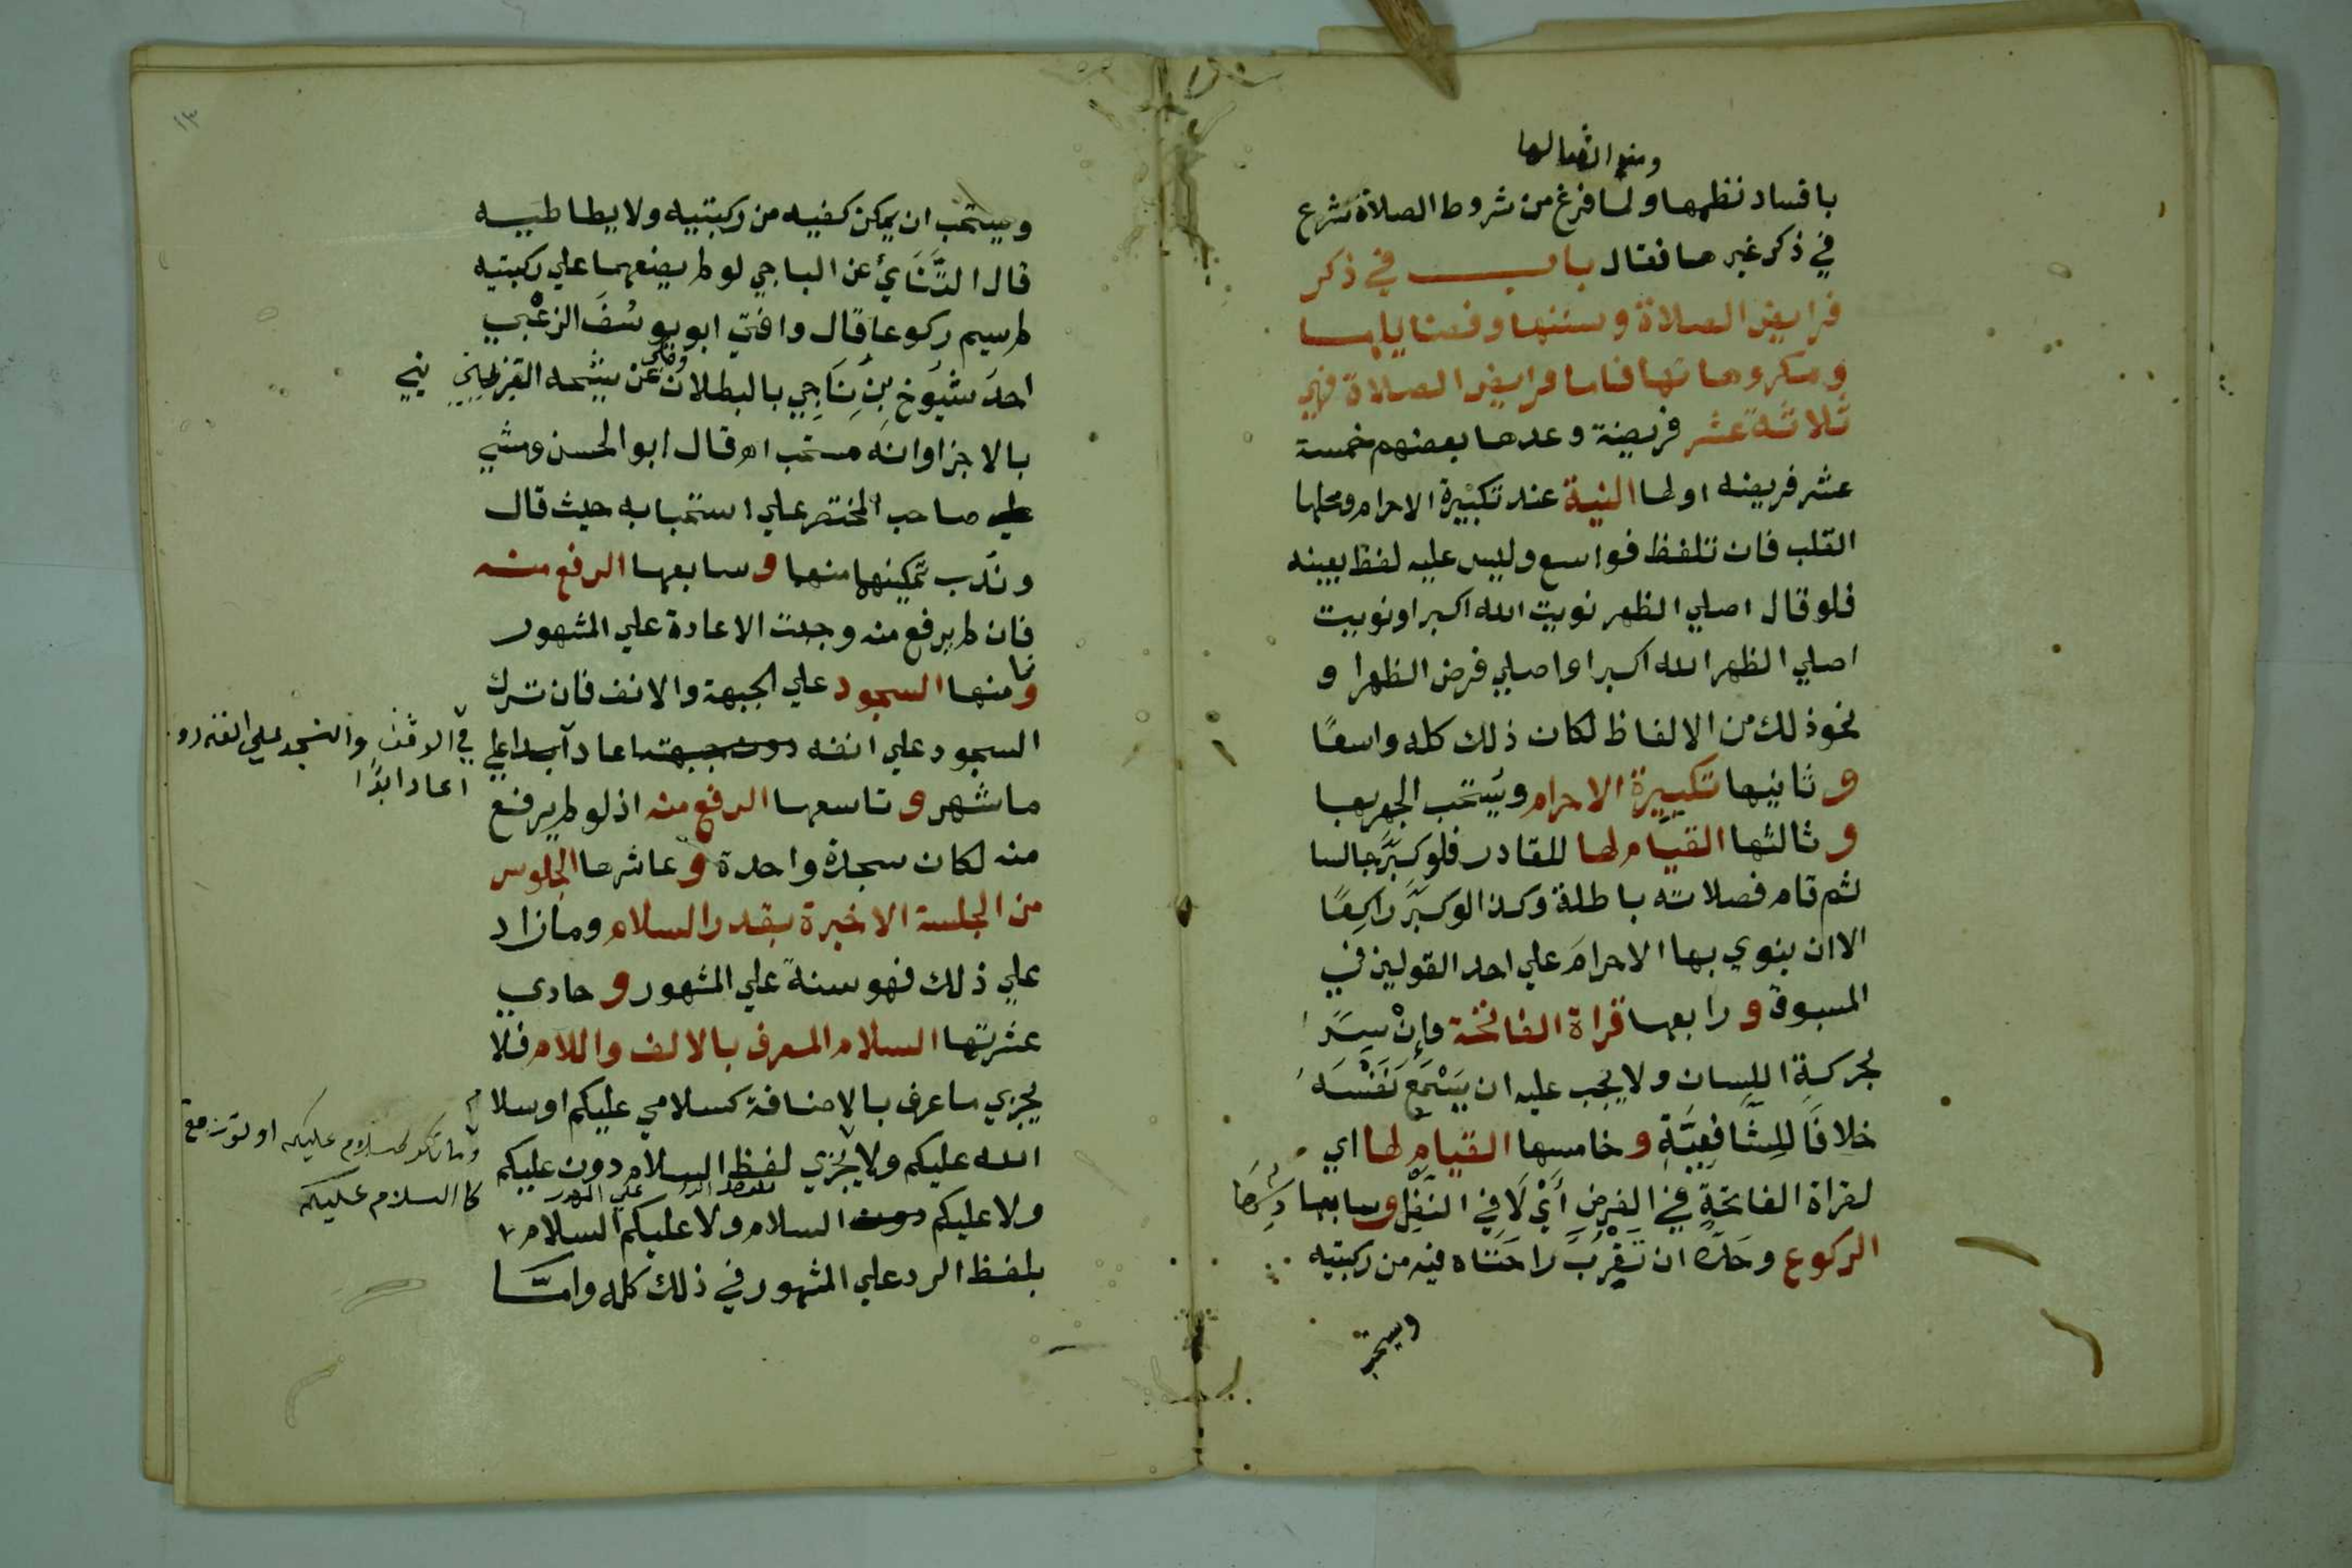 باقساد نظمها ولما فرغ من شروط الصلاة شرع
في ذكر غيرها فقال باب في ذكر
فرايض الصلاة وسننها وفضايلها
ومكروهاتها فاما فرايض الصلاة فهي
ثلاثة عشر فريضة وعدها بعضهم خمسة
عشر فريضه اولها النية عند تكبيرة الاحرام ومحلها
القلب فان تلفظ فواسع وليس عليه لفظ بعينه
فلو قال اصلي الظهر نويت الله اكبر او نويت
اصلي الظهر الله اكبر او اصلي فرض الظهر ا و
نحوذلك من الالفاظ لكان ذلك كله واسعًا
و ثانيها تكبيرة الاحرام ويستحب الجهر بها
و ثالثها القيام لها للقادر فلو كبَّر جالسا
ثم قام فصلاته باطلة وكذا لو كبَّر راكعًا
الا ان ينوي بها الاحرامَ علي احد القولين في
المسبوق و رابعها قراة الفاتحة وإنْ سِرًا
بحركةِ اللِسان ولا يجب عليه ان يَسْمَعَ نَفْسَه
خلافًا للِشَّافِعِيَّةِ و خامسها القيام لها اي
لقراة الفاتحةِ في الفرض أيْ لَا في النَفْلِ وسابعها
الركوع وحَدّه ان تَقْرُبَ راحَتَاه فيه من ركبتيه
ويستحب
ويستحب ان يمكن كفيه من ركبتيه ولا يطاطيه
قال التَّتَايُ عن الباجي لو لم يضعهما علي ركبتيه
لم يسم ركوعا قال وافتي ابو يوسُفَ الزعْبي
احدَ شيُوخ بنِ نِاجِي بالبطلان وحكي عن شيخه القبريني
بالاجزا وانَّه مستحب اه قال ابو الحسن ومشي
صاحب المختصر علي استحبابه حيث قال
ونُدب تمكينهما منهما و سابعها الرفع منه
فان لم يرفع منه وجبت الاعادة علي المشهور
وثامنها السجود علي الجبهة والانف فان ترك
السجود علي انفه دون جبهته اعاد ابدا علي
في الوقت وان سجد علي انفه دون
اعاد ابدًا
ما شهر و تاسعها الرفع منه اذ لو لم يرفع
منه لكان سجدة واحدة و عاشرها الجلوس
من الجلسة الاخيرة بقدر السلام وما زاد
علي ذلك فهو سنة علي المشهور و حادي
عشرتها السلام المعرف بالالف واللام فلا
يجزي ما عرف بالاضافة كسلامي عليكم او سلا م
الله عليكم ولا يُجْزي لفظ السلام دون عليكم
ولا عليكم دون السلام ولا عليكم السلام
بلفظ الرد علي المشهور في ذلك كله وامّا
كا السلام عليكم